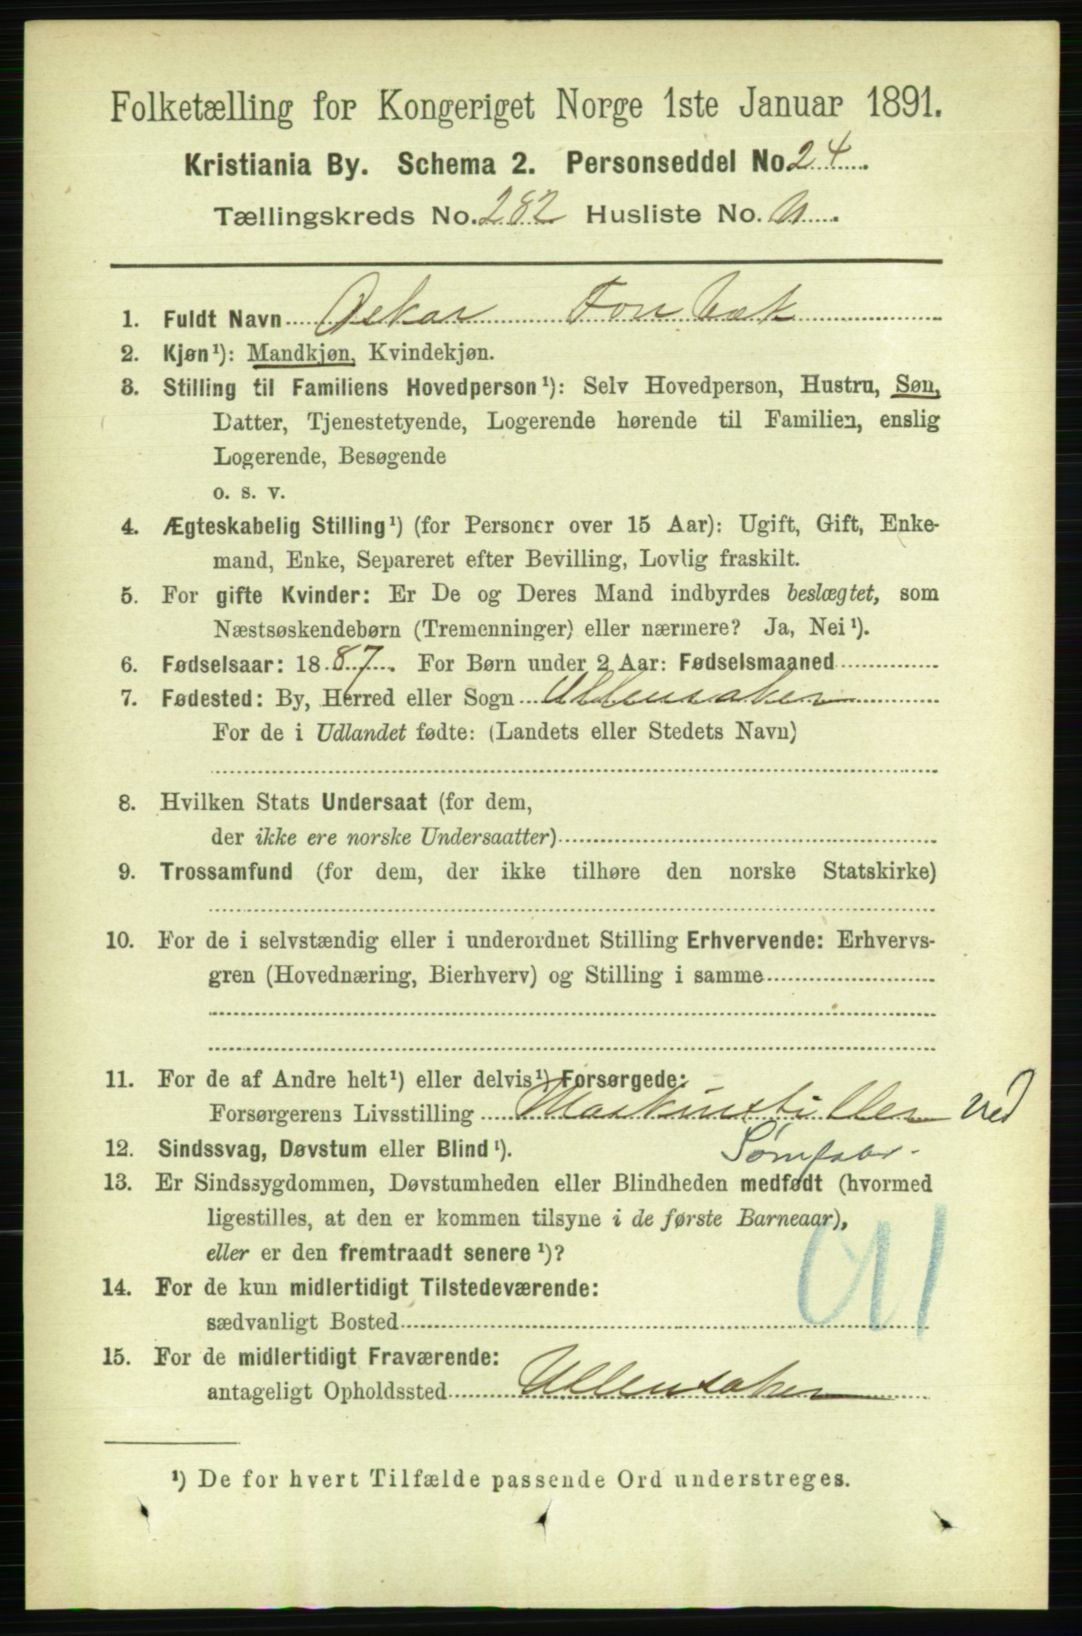 Folketælling for Kongeriget Norge 1ste Januar 1891.
Kristiania By. Schema 2. Personseddel No. 24
Tællingskreds No. 282 Husliste No.
1. Fuldt Navn Oskar
2. Kjøn¹): Mandkjøn, Kvindekjøn.
3. Stilling til Familiens Hovedperson¹): Selv Hovedperson, Hustru, Søn,
Datter, Tjenestetyende, Logerende hørende til Familien, enslig
Logerende, Besøgende
o. s. v.
4. Ægteskabelig Stilling¹) (for Personer over 15 Aar): Ugift, Gift, Enke-
mand, Enke, Separeret efter Bevilling, Lovlig fraskilt.
5. For gifte Kvinder: Er De og Deres Mand indbyrdes beslægtet, som
Næstsøskendebørn (Tremenninger) eller nærmere? Ja, Nei¹).
6. Fødselsaar: 1887. For Børn under 2 Aar: Fødselsmaaned
7. Fødested: By, Herred eller Sogn Ullensaker
For de i Udlandet fødte: (Landets eller Stedets Navn)
8. Hvilken Stats Undersaat (for dem,
der ikke ere norske Undersaatter)
9. Trossamfund (for dem, der ikke tilhøre den norske Statskirke)
10. For de i selvstændig eller i underordnet Stilling Erhvervende: Erhvervs-
gren (Hovednæring, Bierhverv) og Stilling i samme
11. For de af Andre helt¹) eller delvis¹) Forsørgede:
Forsørgerens Livsstilling Maskinstiller ved
Sømfabr.
12. Sindssvag, Døvstum eller Blind¹).
13. Er Sindssygdommen, Døvstumheden eller Blindheden medfødt (hvormed
ligestilles, at den er kommen tilsyne i de første Barneaar),
eller er den fremtraadt senere¹)?
14. For de kun midlertidigt Tilstedeværende:
sædvanligt Bosted
15. For de midlertidigt Fraværende:
antageligt Opholdssted Ullensaker
¹) De for hvert Tilfælde passende Ord understreges.